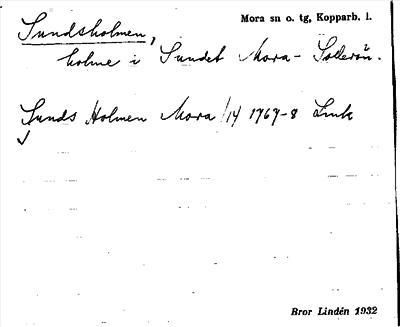 Sundsholmen,
Mora sn o. tg, Kopparb. l.
holme i Sundet Mora - Sollerön.
Sunds Holmen Mora 1/14 1767-8 Link
Bror Lindén 1932